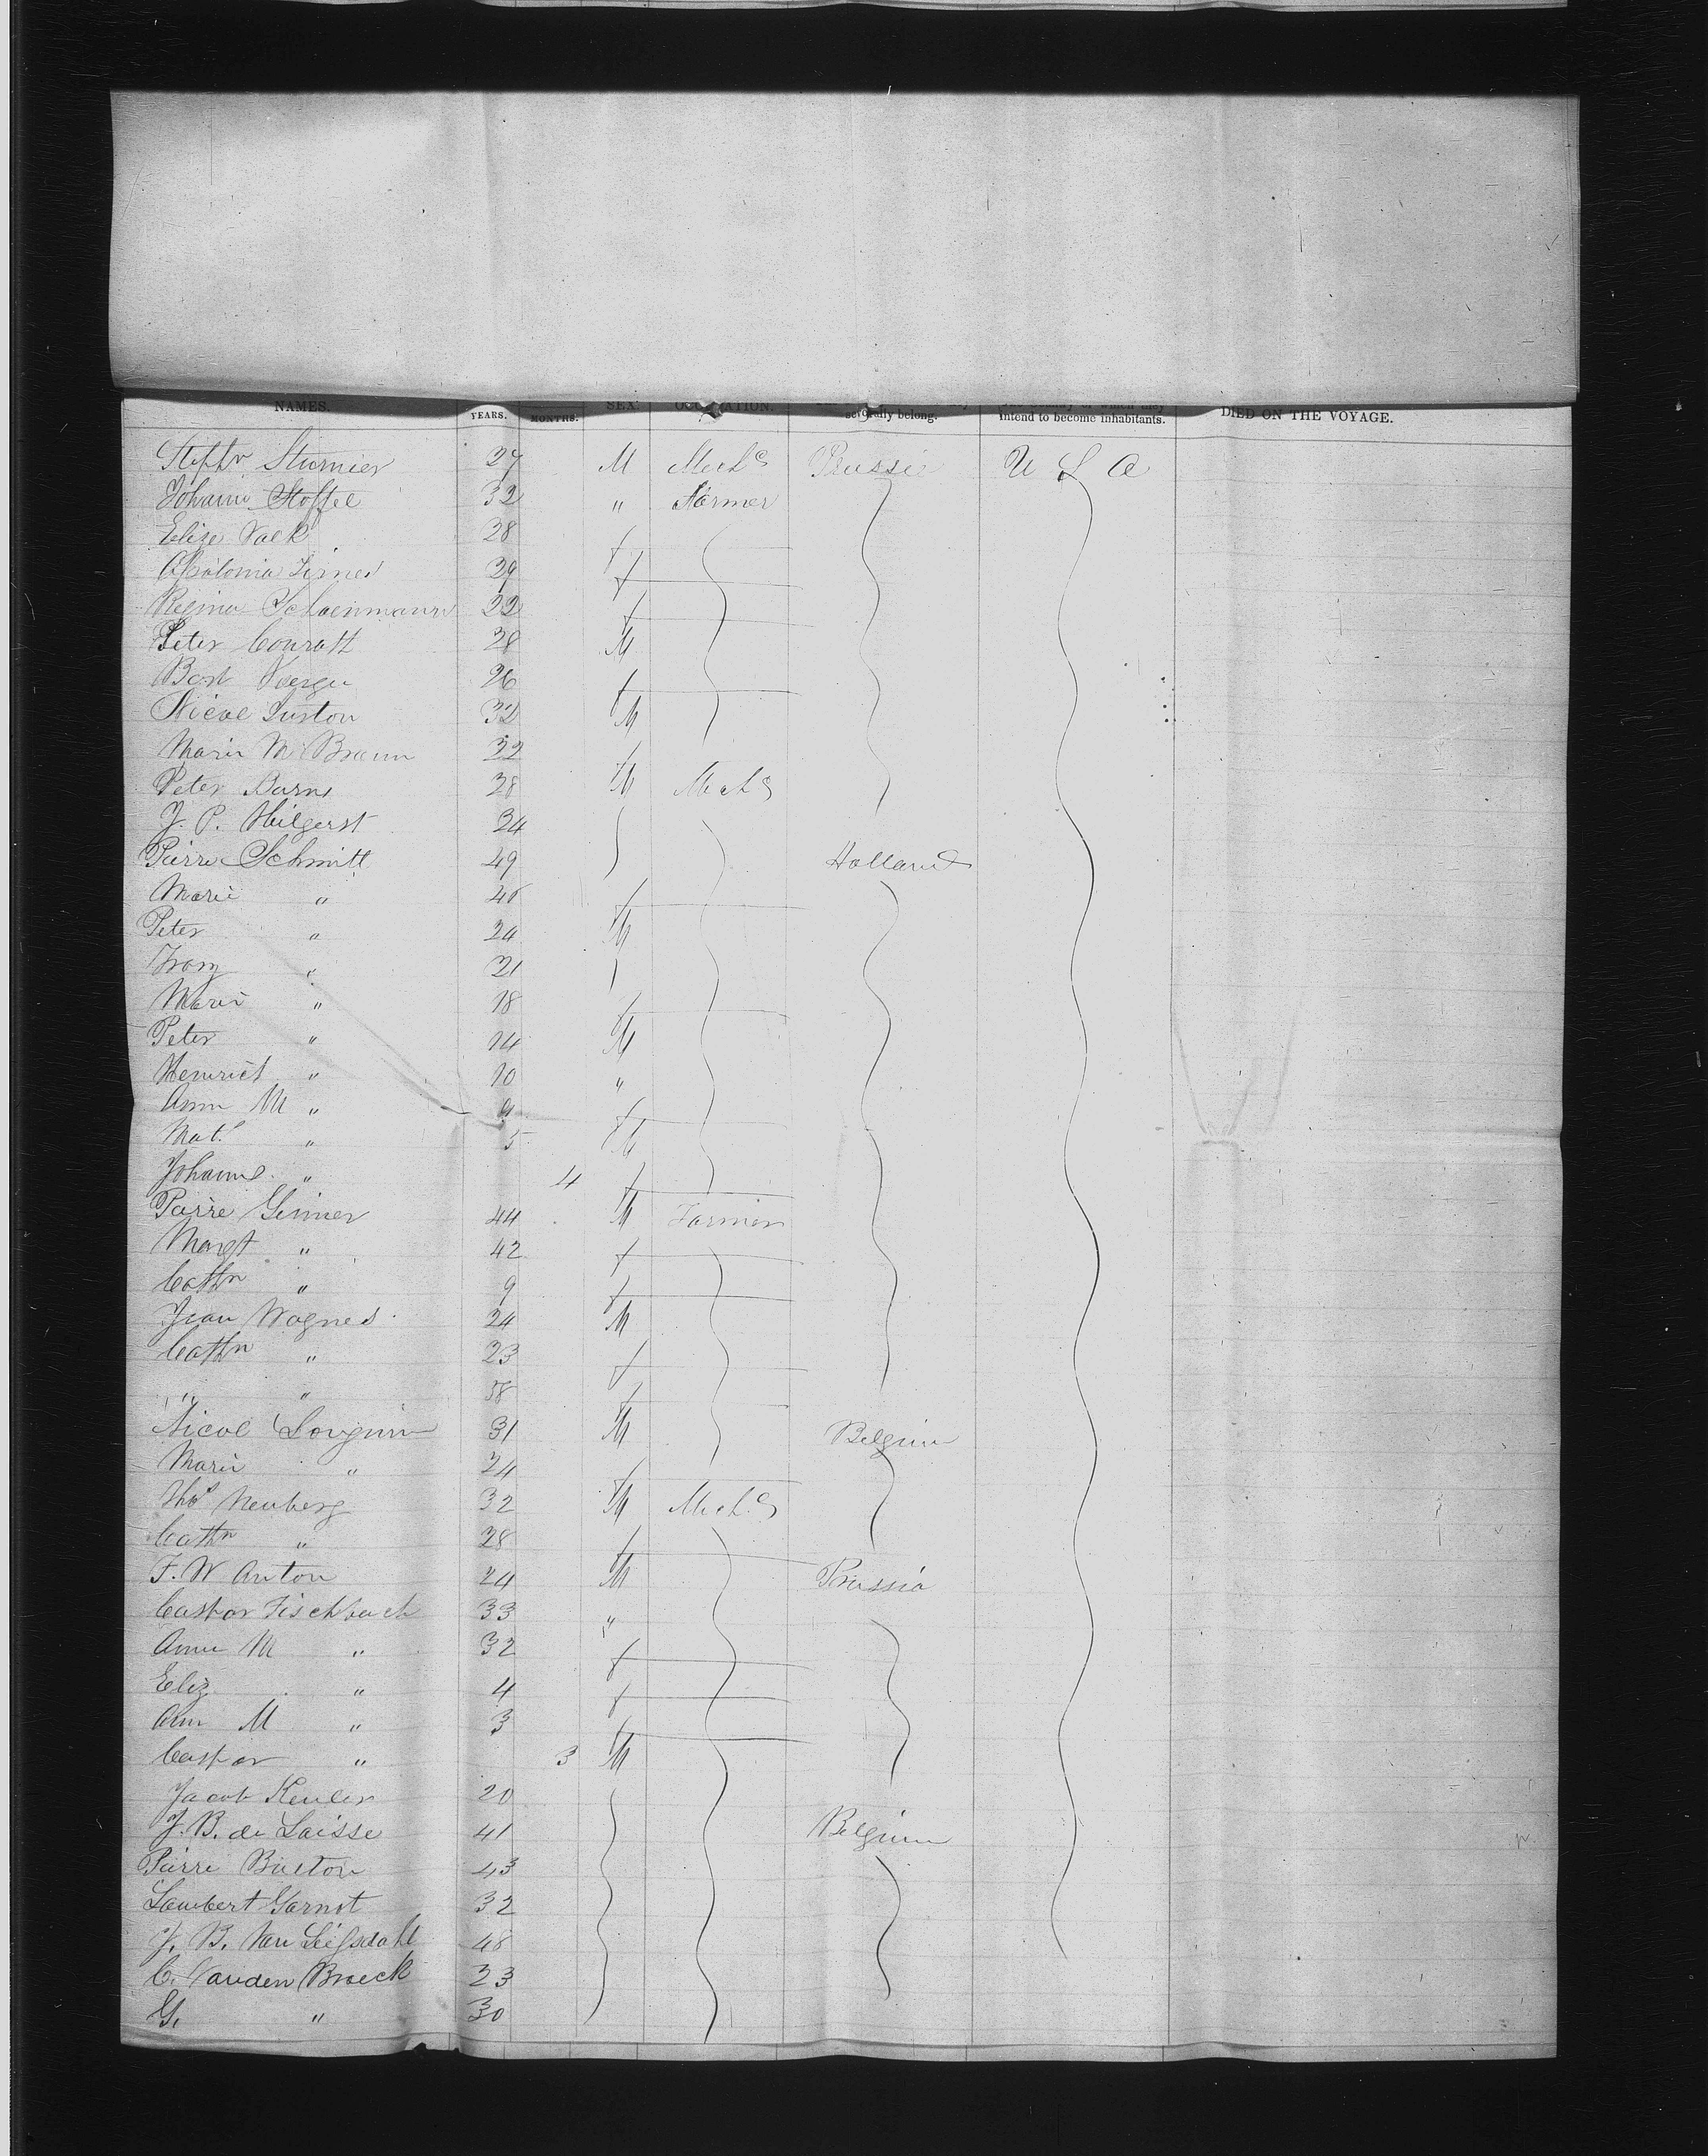 NAMES. YEARS. MONTHS. SEX. OCCUPATION. severally belong. intend to become inhabitants. DIED ON THE VOYAGE.
Stephn Sturnier 27 M Mech's Prussia U S A
Johann Stoffel 32 " Farmer
Elise Valk 28 f
Apalonia 29 f
Regina Schoenmann 22 f
Peter Conratt 28 M
26 f
Nicol Suston 32 M
Marie M Braun 22 f
Peter Barns 28 M Mech's
J. P. Hilgerst 24
Pierre Schmitt 49 Holland
Marie " 46 f
Peter " 24 M
Franz " 21
Marie " 18 f
Peter " 14 M
Heinrich " 10 "
Ann M " 9 f
Mat. " 5 M
Johanne " 4 f
Pierre Genner 44 M Farmer
Margt " 42 f
Cathn " 9 f
Jean Wagner 24 M
Cathn " 23 f
" " 58 f
Nicol Longuin 31 M Belgium
Marie " 24 f
Thos Neuberg 32 M Mech's
Cathn " 28 f
F. W Anton 24 M Prussia
Caspar Fischbach 33 "
Anna M " 32 f
Eliz " 4 f
Ann M " 3 f
Caspar " 3 M
Jacob Keuler 20
J. B. de Laisse 41 Belgium
Pierre Buston 43
Lambert Garnot 32
J. B. Van 48
C. Vanden Broeck 23
G. " 30